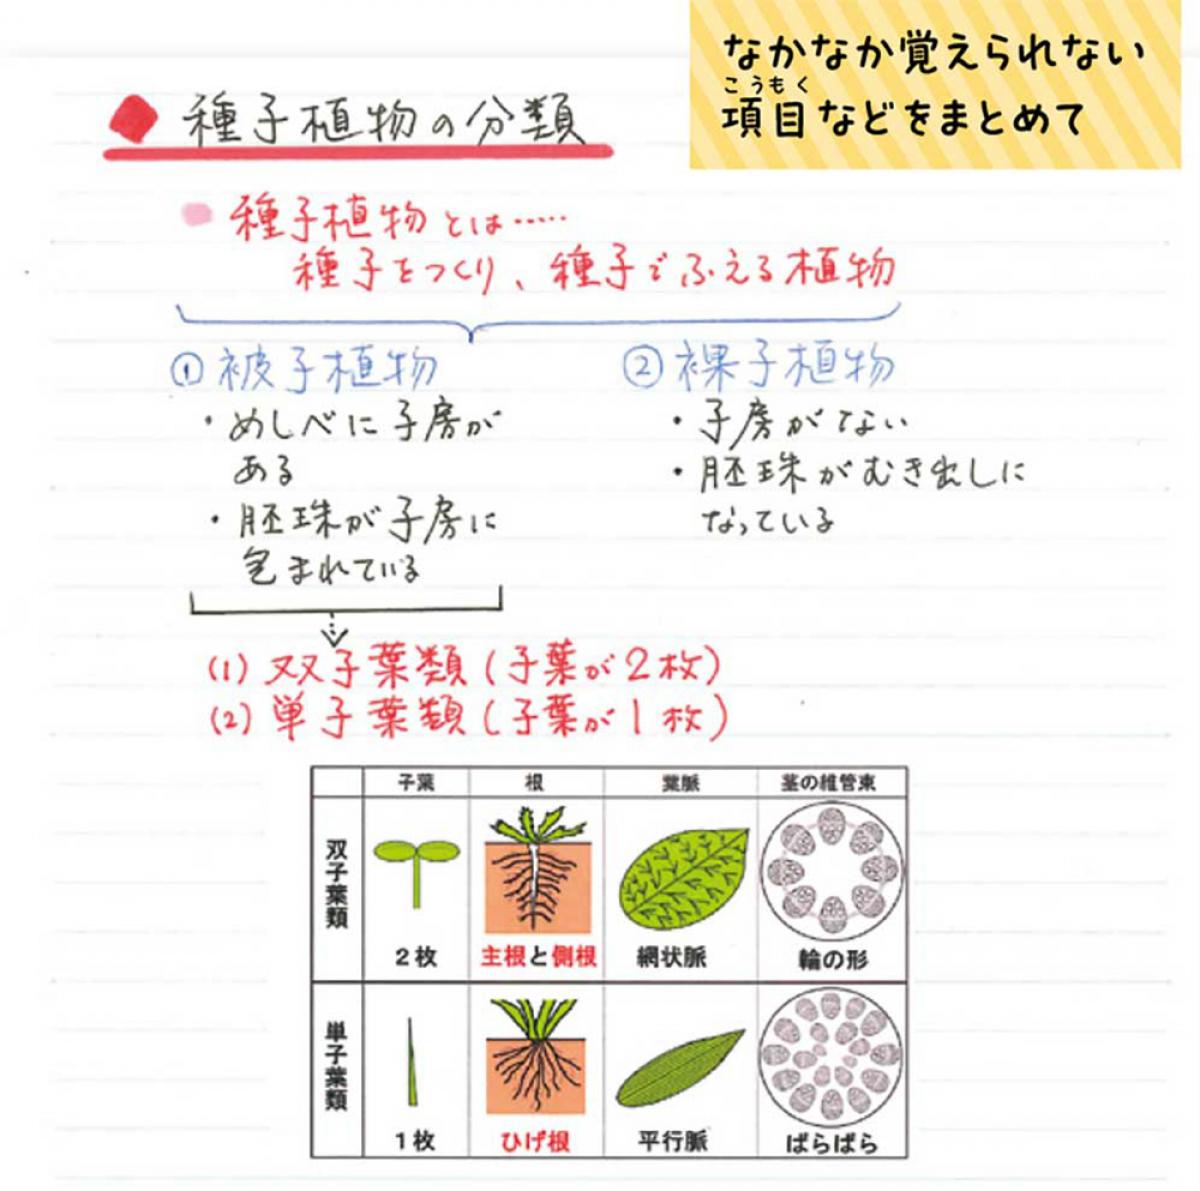 なかなか覚えられない
こうもく
項目などをまとめて
種子植物の分類
種子植物とは……
種子をつくり、種子でふえる植物
① 被子植物
・めしべに子房が
ある
・胚珠が子房に
包まれている
② 裸子植物
・子房がない
・胚珠がむき出しに
なっている
(1) 双子葉類(子葉が2枚)
(2) 単子葉類(子葉が1枚)
子葉 根 葉脈 茎の維管束
双子葉類
2枚 主根と側根 網状脈 輪の形
単子葉類
1枚 ひげ根 平行脈 ばらばら